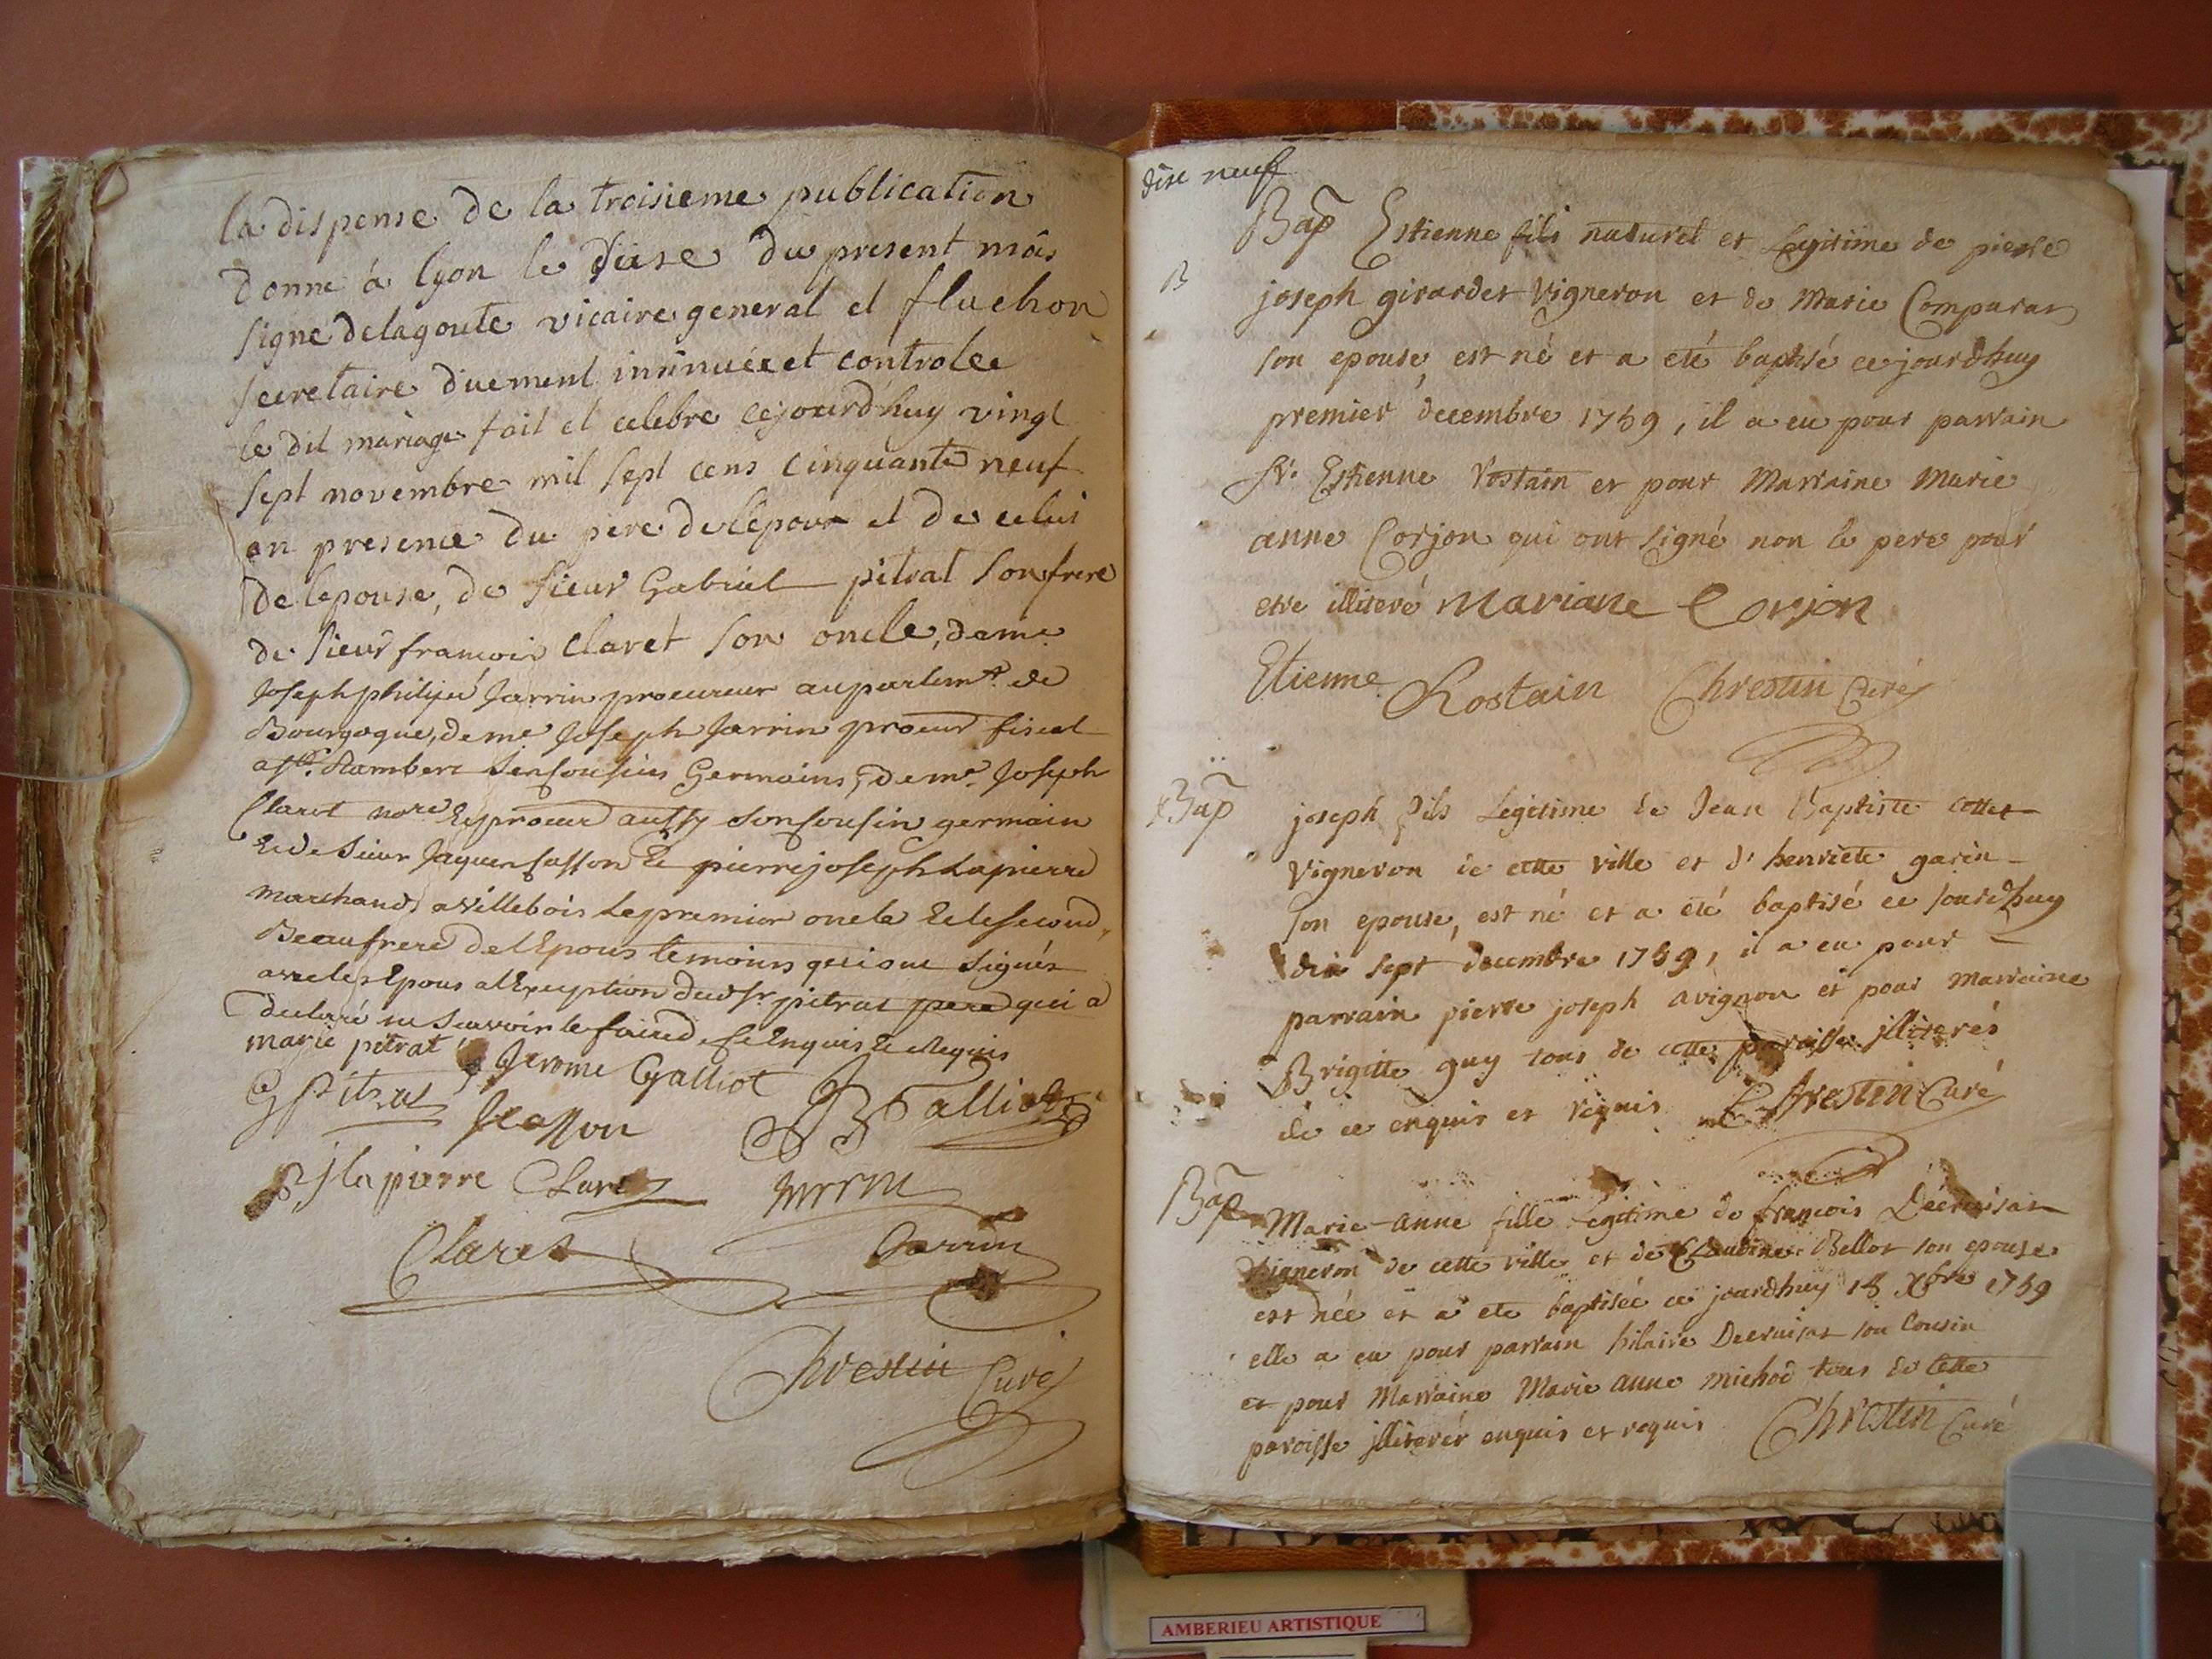 la dispense de la troisieme publication
donne á lyon le du present mois
signe delagoute vicaire general et fluchon
secretaire duement insinuée et controlee
le dit mariage fait et celebre cejourd'huy vingt
sept novembre mil sept cens cinquante neuf
en presence du pere de lepoux et de celui
de lepouse, de sieur Gabriel pitrat son frere
de sieur francois Claret son oncle, de me
Joseph philipe Jarrin procureur au parlemt. de
Bourgogne, de me Joseph Jarrin procur fiscal
a st. Rambert Germains, de me. Joseph
Claret nore & procur aussy son cousin germain
& de sieur Jaques sasson & pierre joseph Lapierre
marchands a villebois le premier oncle & le second
Beaufrere de l'Epous temoins qui ont signés
avec les Epous a l'Exeption dud sr. pitrat pere qui a
declaré ne scavoir le faire de ce Enquis & Requis
marie pitrat Jerome Galliot
G Pitrat Sasson Galliot
P j la pierre Claret Jarrin
Claret Jarrin
Chrestin Curé
dixe neuf
Bap Estienne fils naturel et legitime de pierre
B joseph girardet vigneron et de Marie Comparat
son epouse, est né et a eté baptisé ce jourdhuy
premier decembre 1759, il a eu pour parrain
Sr. Estienne Rostain et pour Marraine Marie
anne Corjon qui ont signé non le pere pour
etre illiteré Mariane Corjon
Etienne Rostain Chrestin Curé
Bap joseph fils Legitime de Jean Baptiste cottet
vigneron de cette ville et d'henriete garin
son epouse, est né et a eté baptisé ce jourdhuy
dix sept decembre 1759, il a eu pour
parrain pierre joseph avignon et pour marraine
Brigitte guy tous de cette paroisse jlliterés
de ce enquis et requis Chrestin Curé
Bap Marie-anne fille Legitime de françois Decruisat
vigneron de cette ville et de Claudine Bellot son epouse
est née et a ete baptisée ce jourdhuy 18 Xbre 1759
elle a eu pour parrain hilaire Decruisat son Cousin
et pour Marraine Marie anne michod tous de Cette
paroisse jlliterés enquis et requis Chrestin Curé
AMBERIEU ARTISTIQUE